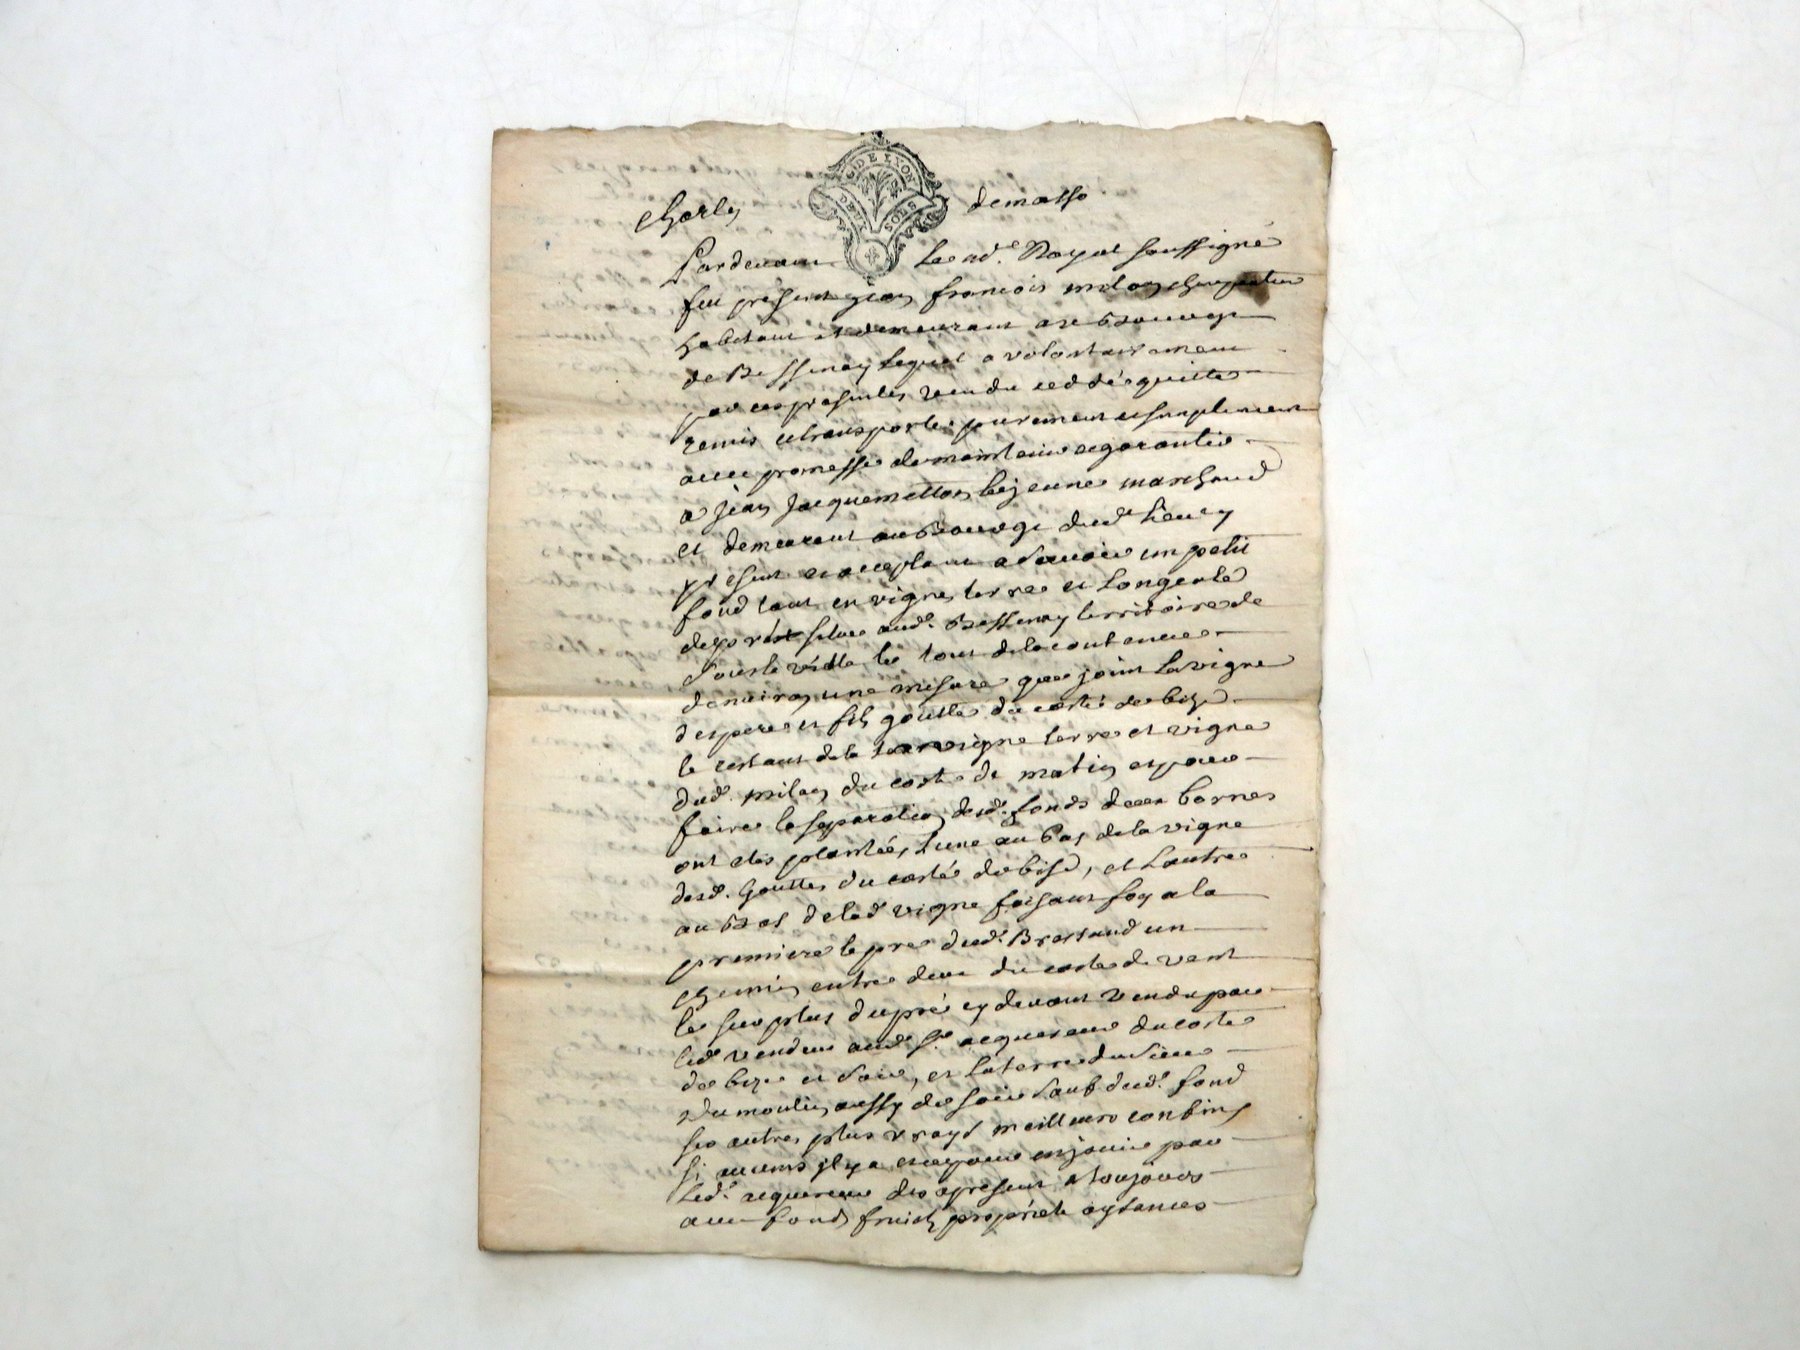 G. DE LYON
DEUX SOLS
Pardevant Le nd.e Royal soussigné
fut present jean françois milan charpentier
habitant et demeurant au Bourg
de Bessenay lequel a volontairement
par ces presentes vendu ceddé quitté
remis et transporté purement et simplement
avec promesse de maintenir et garantir
a jean Jacquemetton le jeune marchand
et demeurant au Bourg dud. lieu cy
present et acceptant a savoir un petit
fond tout en vigne, terre et
de pré situé aud. Bessenay territoire de
le tout de la contenue
d'environ une mesure que joint la vigne
des pere et fils goutte du costé de bize
le restant de la terre et vigne
dud. milan du costé de matin et pour
faire la separation desd. fonds deux bornes
ont etés plantées, l'une au bas de la vigne
desd. Goutte du costé de bise, et L'autre
au bas de lad. vigne faisant foy a la
premiere le pré dud. un
chemin entre deux du costé de vent
le surplus du pré cy devant vendu par
led. vendeur aud. Sr. acquereur du costé
de bize et soir, et la terre du sieur
Du moulin aussy de soir sauf dud. fond
ses autres plus vrays meilleurs confins
si aucuns il y a et pour en jouir par
Led. acquereur des a present a toujours
avec fonds fruits proprieté aysances